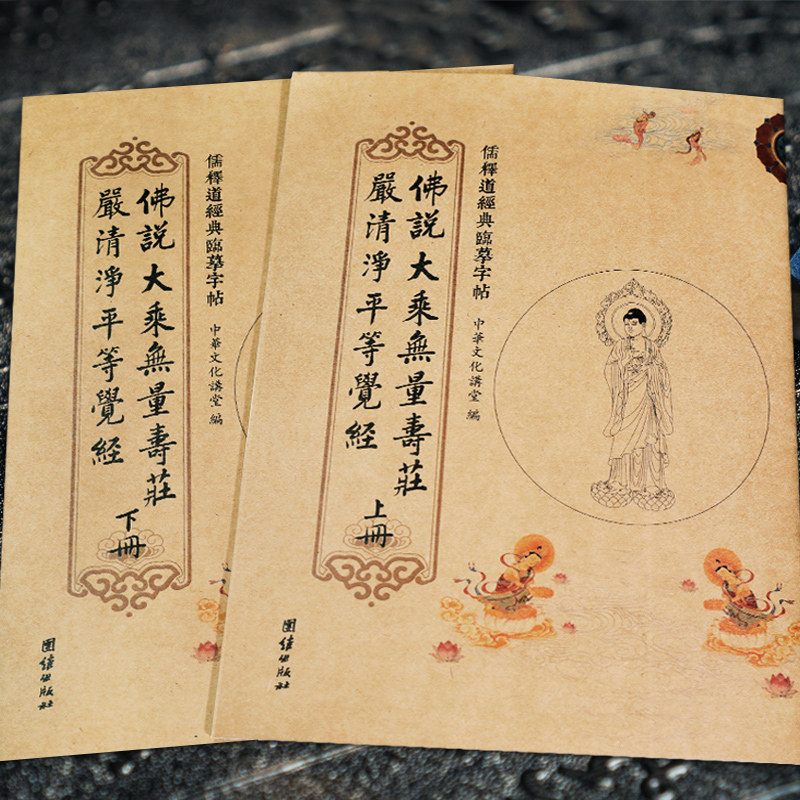 儒釋道經典臨摹字帖
中華文化講堂 編
佛説大乘無量壽莊
嚴清淨平等覺経
下冊
團结出版社
儒釋道經典臨摹字帖
中華文化講堂 編
佛説大乘無量壽莊
嚴清淨平等覺経
上冊
團结出版社